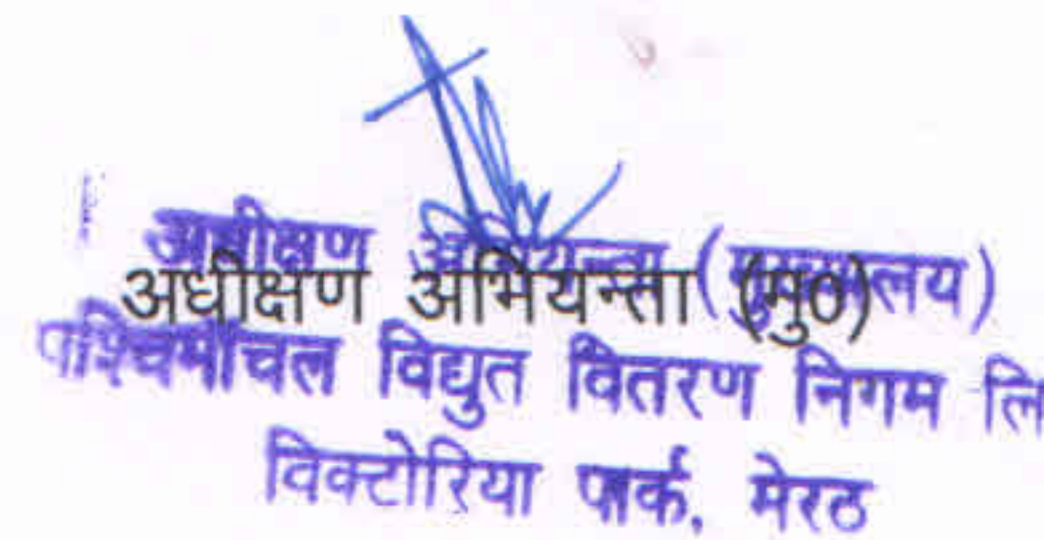 अधीक्षण अभियन्ता (मुख्यालय)
अधीक्षण अभियन्ता (मु0)
पश्चिमांचल विद्युत वितरण निगम लि
विक्टोरिया पार्क, मेरठ